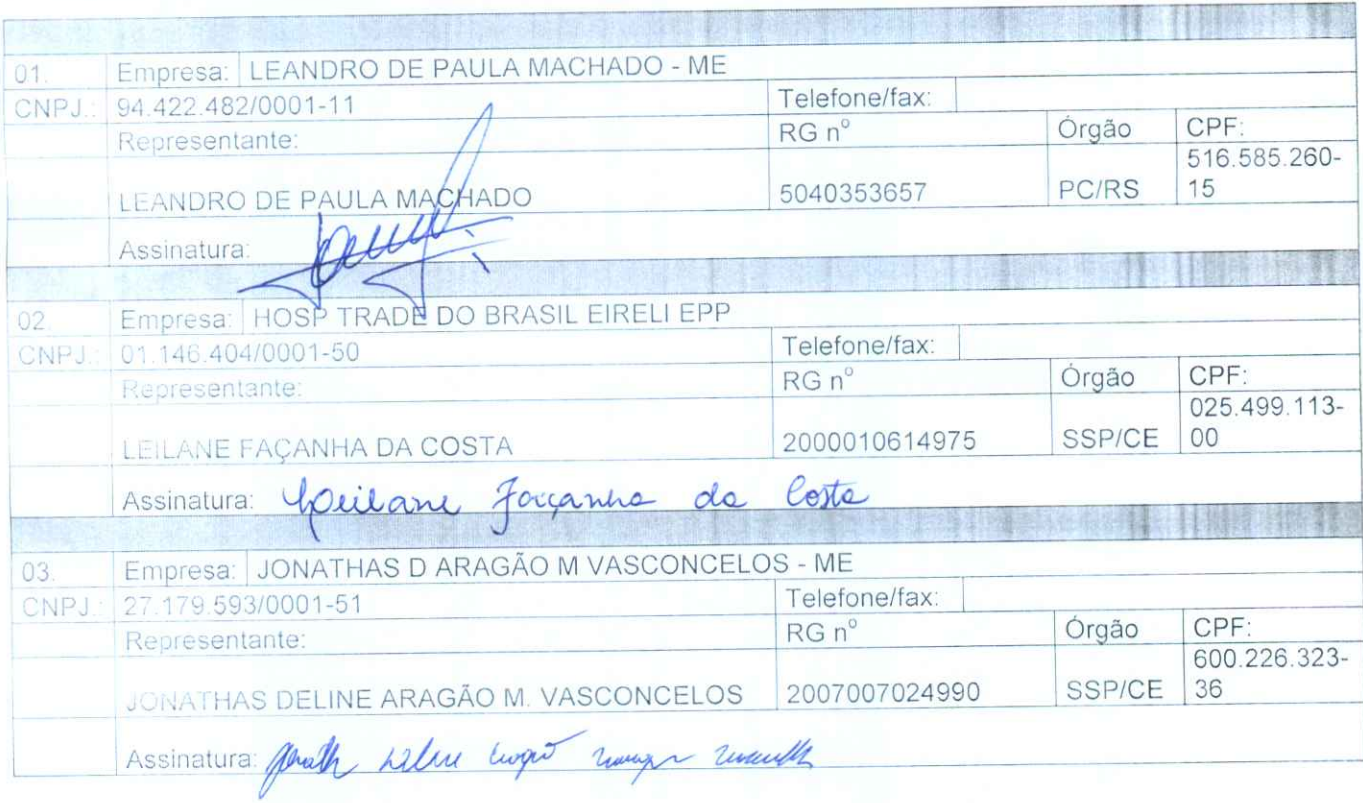 01. Empresa: LEANDRO DE PAULA MACHADO - ME
CNPJ.: 94.422.482/0001-11 Telefone/fax:
Representante: RG nº Órgão CPF:
LEANDRO DE PAULA MACHADO 5040353657 PC/RS 516.585.260-
15
Assinatura:
02. Empresa: HOSP TRADE DO BRASIL EIRELI EPP
CNPJ.: 01.146.404/0001-50 Telefone/fax:
Representante: RG nº Órgão CPF:
LEILANE FAÇANHA DA COSTA 2000010614975 SSP/CE 025.499.113-
00
Assinatura: Leilane Façanha da Costa
03. Empresa: JONATHAS D ARAGÃO M VASCONCELOS - ME
CNPJ.: 27.179.593/0001-51 Telefone/fax:
Representante: RG nº Órgão CPF:
JONATHAS DELINE ARAGÃO M. VASCONCELOS 2007007024990 SSP/CE 600.226.323-
36
Assinatura: